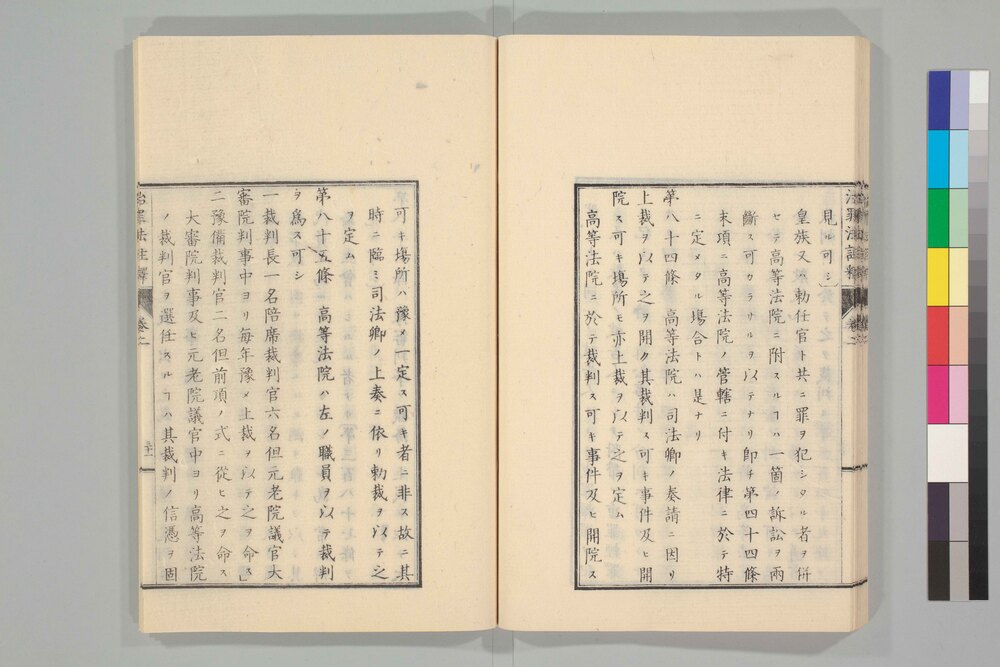 治罪法註釋 卷之
見ル可シ」
皇族又ハ勅任官ト共ニ罪ヲ犯シタル者ヲ併
セテ高等法院ニ附スルヿハ一箇ノ訴訟ヲ兩
斷ス可カラサルヲ以テナリ卽チ第四十四條
末項ニ高等法院ノ管轄ニ付キ法律ニ於テ特
ニ定メタル塲合トハ是ナリ
第八十四條 高等法院ハ司法卿ノ奏請ニ因リ
上裁ヲ以テ之ヲ開ク其裁判ス可キ事件及ヒ開
院ス可キ塲所モ亦上裁ヲ以テ之ヲ定ム
高等法院ニ於テ裁判ス可キ事件及ヒ開院ス
可キ塲所ハ豫メ一定ス可キ者ニ非ス故ニ其
時ニ臨ミ司法卿ノ上奏ニ依リ勅裁ヲ以テ之
ヲ定ム
第八十五條 高等法院ハ左ノ職員ヲ以テ裁判
ヲ爲ス可シ
一裁判長一名陪席裁判官六名但元老院議官大
審院判事中ヨリ每年豫メ上裁ヲ以テ之ヲ命ス」
二豫備裁判官二名但前項ノ式ニ從ヒ之ヲ命ス
大審院判事及ヒ元老院議官中ヨリ高等法院
ノ裁判官ヲ選任スルヿハ其裁判ノ信憑ヲ固
治罪法註釋 卷之